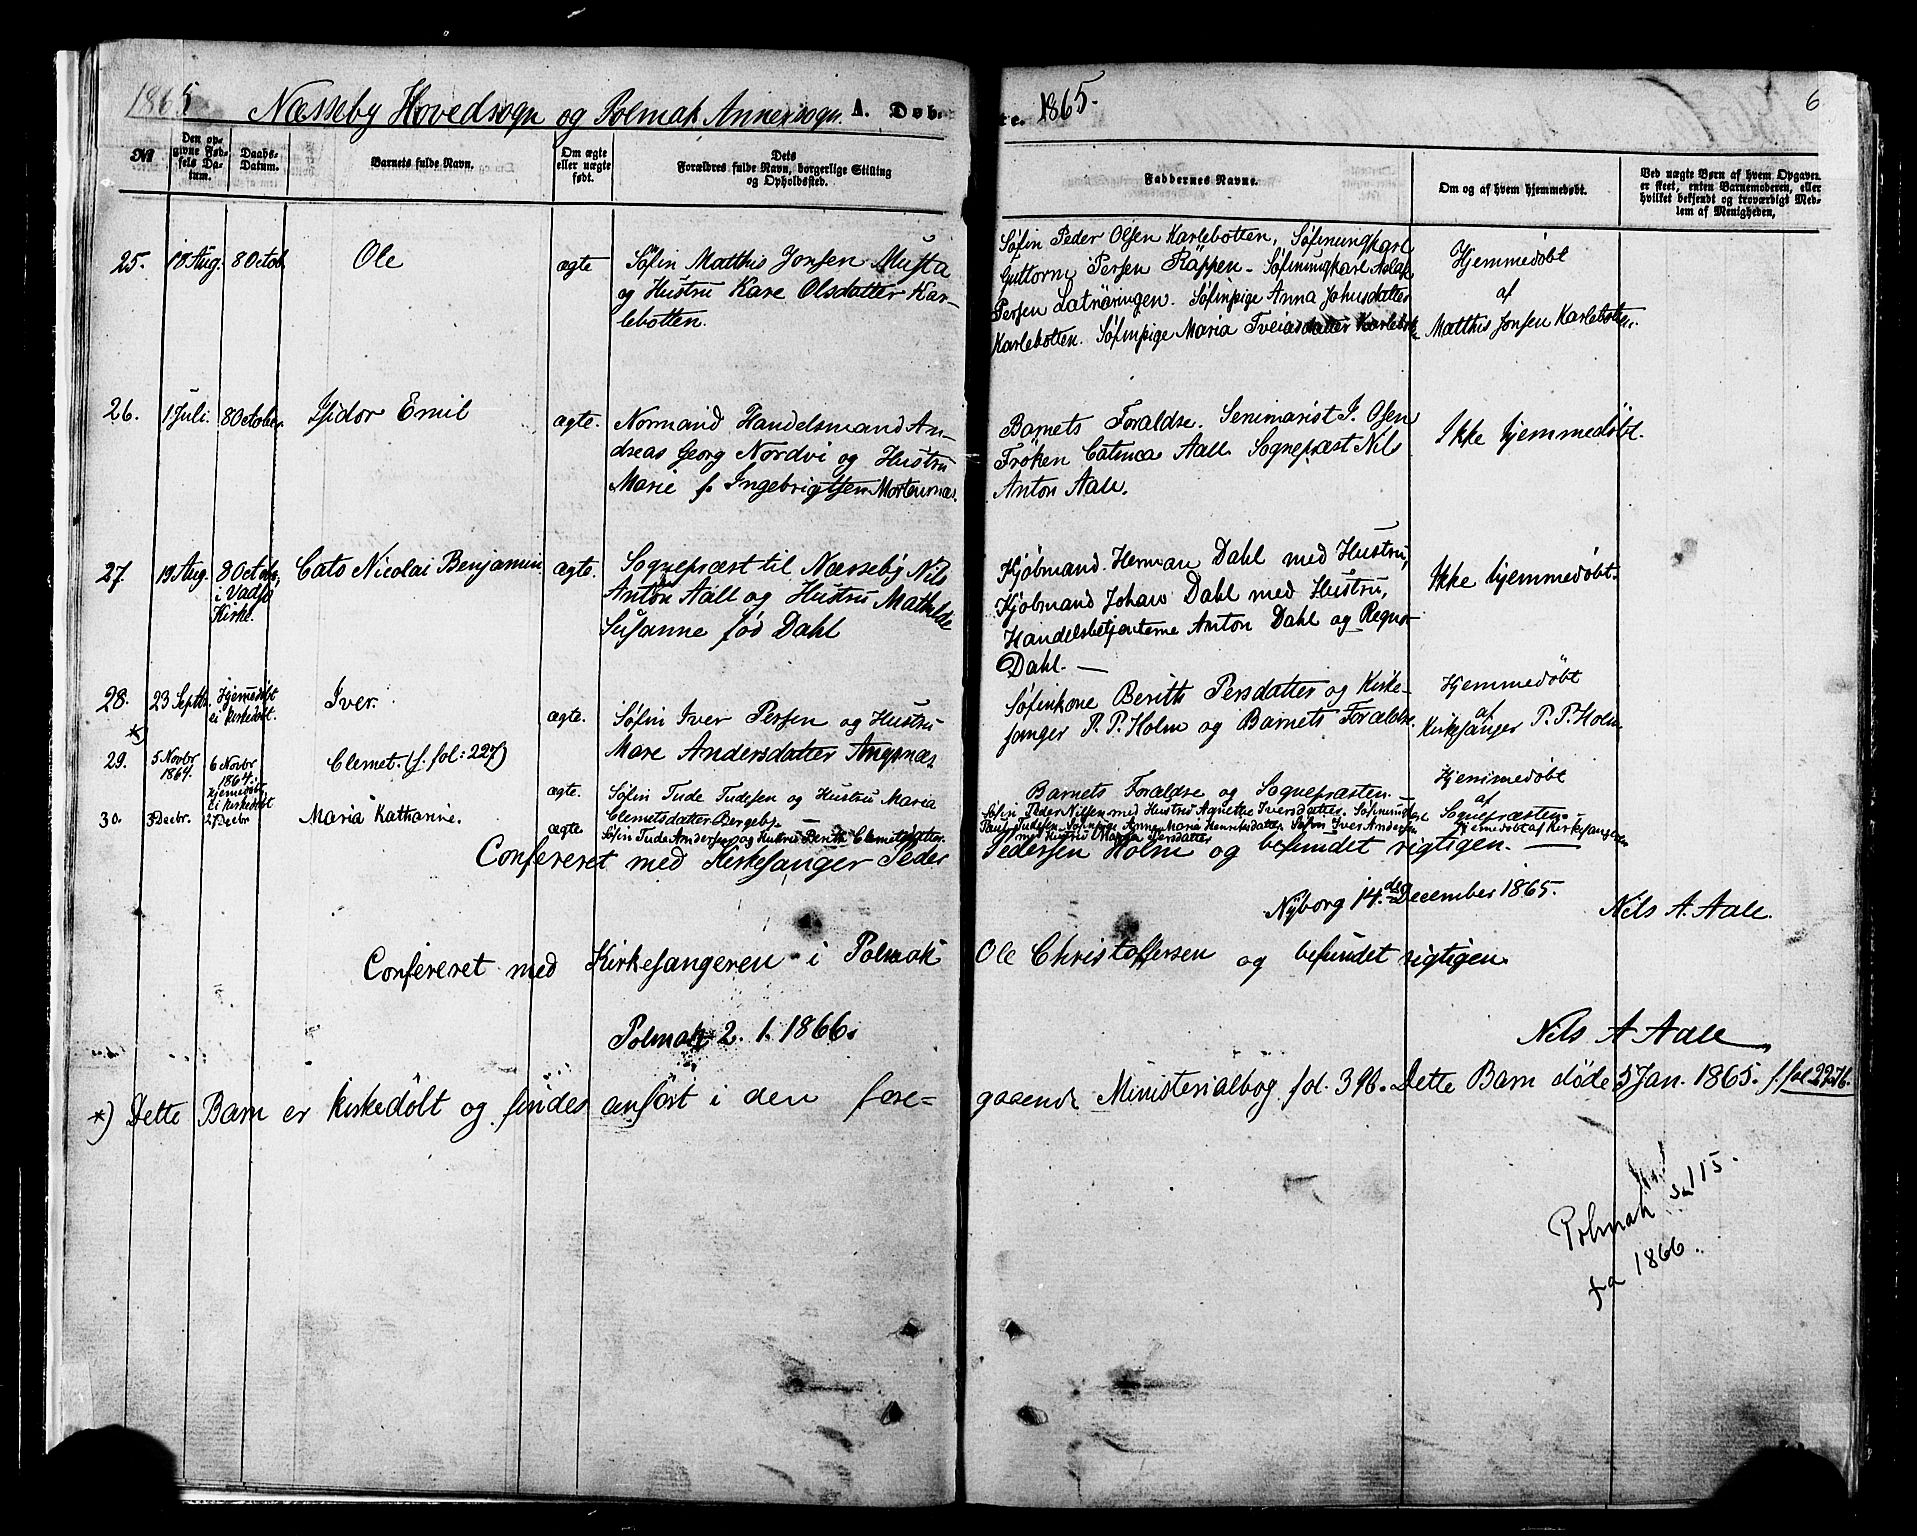 1865 Næsseby Hovedsogn og Polmak Annexsogn. A. Døb-
te. 1865.
6
№
Den op-
givne Fød-
sels Da-
tum.
Daabs-
Datum.
Barnets fulde Navn.
Om ægte
eller uægte
født.
Dets
Forældres fulde Navn, borgerlige Stilling
og Opholdssted.
Faddernes Navne.
Om og af hvem hjemmedøbt.
Ved uægte Børn af hvem Opgaven
er skeet, enten Barnemoderen, eller
hvilket bekjendt og troværdigt Med-
lem af Menigheden.
25.
18 Aug.
8 Octob.
Ole
ægte
Søfin Matthis Jonsen Musta
og Hustru Kare Olsdatter Kar-
lebotten.
Søfin Peder Olsen Karlebotten, Søfinungkarl
Guttorm Persen Rappen - Søfinungkarl Aslak
Persen Latnæringen. Søfinpige Anna Johnsdatter
Karlebotten. Søfinpige Maria
Hjemmedøbt
af
Matthis Jonsen Karlebotten.
26.
1 Juli.
8 October.
Isidor Emil
ægte.
Normand Handelsmand An-
dreas Georg Nordvi og Hustru
Marie f. Ingebrigtsen Mortensnæs.
Barnets Forældre. Seminarist I. Olsen
Frøken Catinca Aall. Sognepræst Nils
Anton Aall.
Ikke hjemmedøbt.
27.
19 Aug.
8 Octobr.
i Vadsø
Kirke.
Cato Nicolai Benjamin
ægte.
Sognepræst til Næsseby Nils
Anton Aall og Hustru Mathilde
Susanne fød Dahl
Kjøbmand Herman Dahl med Hustru,
Kjøbmand Johan Dahl med Hustru,
Handelsbetjenterne Anton Dahl og Regnor
Dahl. —
Ikke hjemmedøbt.
28.
23 Septbr.
Hjemmedøbt
ei kirkedøbt.
Iver.
ægte.
Søfin Iver Persen og Hustru
Mare Andersdatter Angsnæs
Søfinkone Berith Persdatter og Kirke-
sanger P. P. Holm og Barnets Forældre.
Hjemmedøbt
af
Kirkesanger P. P. Holm
*)
29.
5 Novbr
1864.
6 Novbr
1864.
hjemmedøbt
ei kirkedøbt
Clemet. (s. fol: 227)
ægte.
Søfin Tude Tudesen og Hustru Maria
Clemetsdatter Bergeby.
Barnets Forældre og Sognepræsten.
Hjemmedøbt
af
Sognepræsten.
30.
3 Decbr.
27 Decbr.
Maria Katharine.
ægte
Søfin Tude Andersen og Hustru Berith Clemetsdatter.
Søfin Peder Nilsen med Hustru Agnethe Iversdatter. Søfinungkarl
Paul Tudesen. Søfinpige Anne Marie Henriksdatter. Søfin Iver Andersen
med Hustru Marja Persdatter
Hjemmedøbt af Kirkesangeren
Confereret med Kirkesanger Peder Pedersen Holm og befundet rigtigen. —
Nyborg 14. de December 1865.
Nils A. Aall.
Confereret med Kirkesangeren i Polmak Ole Christoffersen og befundet rigtigen.
Polmak 2. 1. 1866.
Nils A Aall
*) Dette Barn er kirkedøbt og findes anført i den fore- gaaende Ministerialbog fol. 396. Dette Barn døde 5 Jan. 1865. s. fol. 2276.
Polmak 115.
fra 1866.